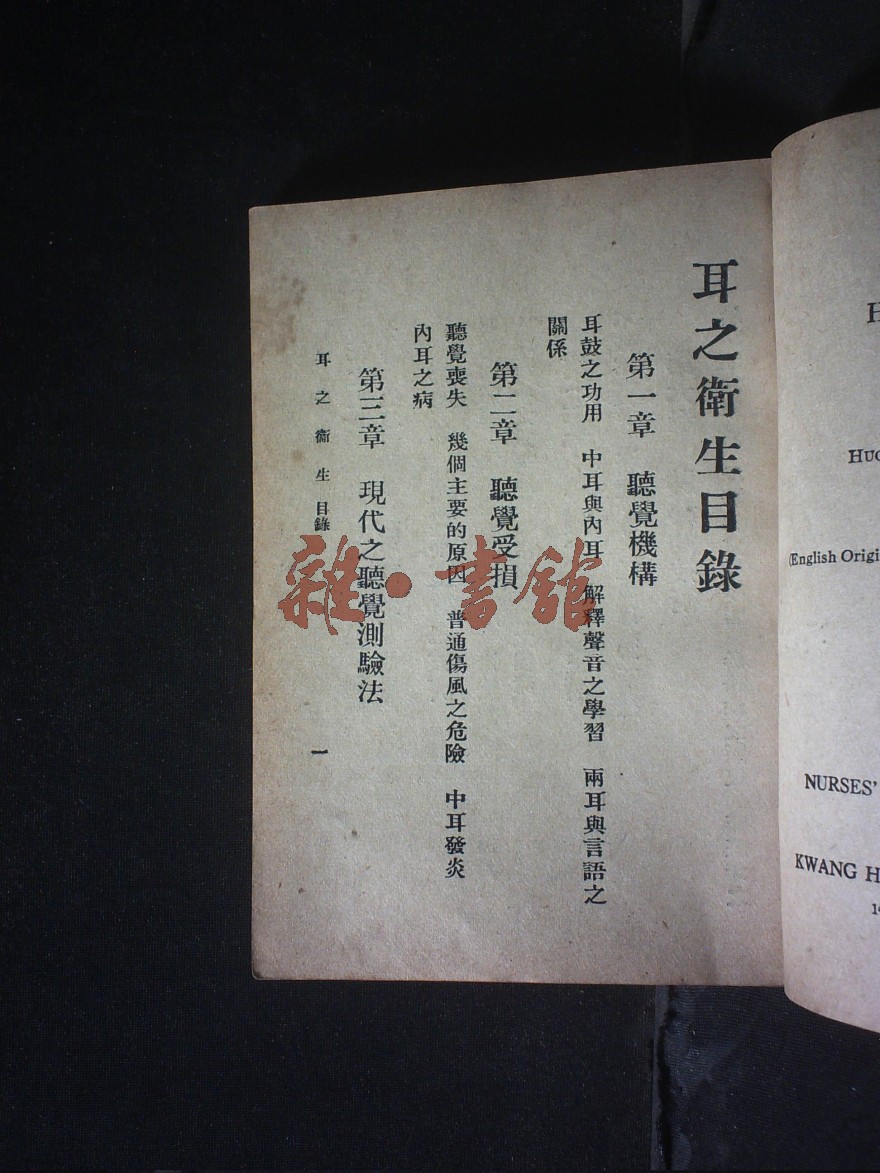 耳之衛生目錄
第一章　聽覺機構
耳鼓之功用　中耳與內耳　解釋聲音之學習　兩耳與言語之
關係
第二章　聽覺受損
聽覺喪失　幾個主要的原因　普通傷風之危險　中耳發炎
內耳之病
第三章　現代之聽覺測驗法
耳之衛生　目錄　一
雜·書館
H
HUG
(English Origi
NURSES'
KWANG H